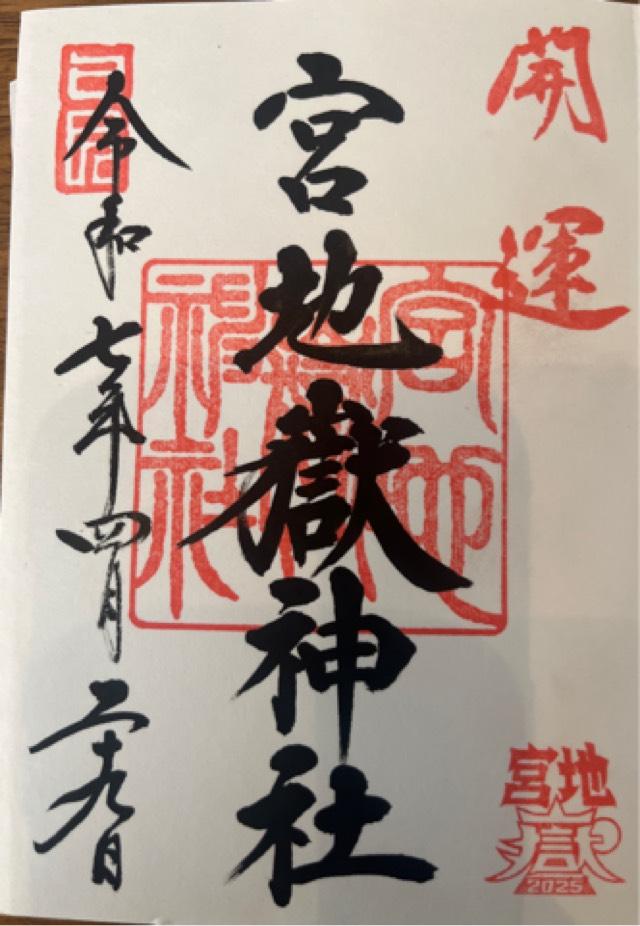 開運
宮地嶽神社
宮地嶽神社
令和七年四月二十九日
宮地
嶽
2025